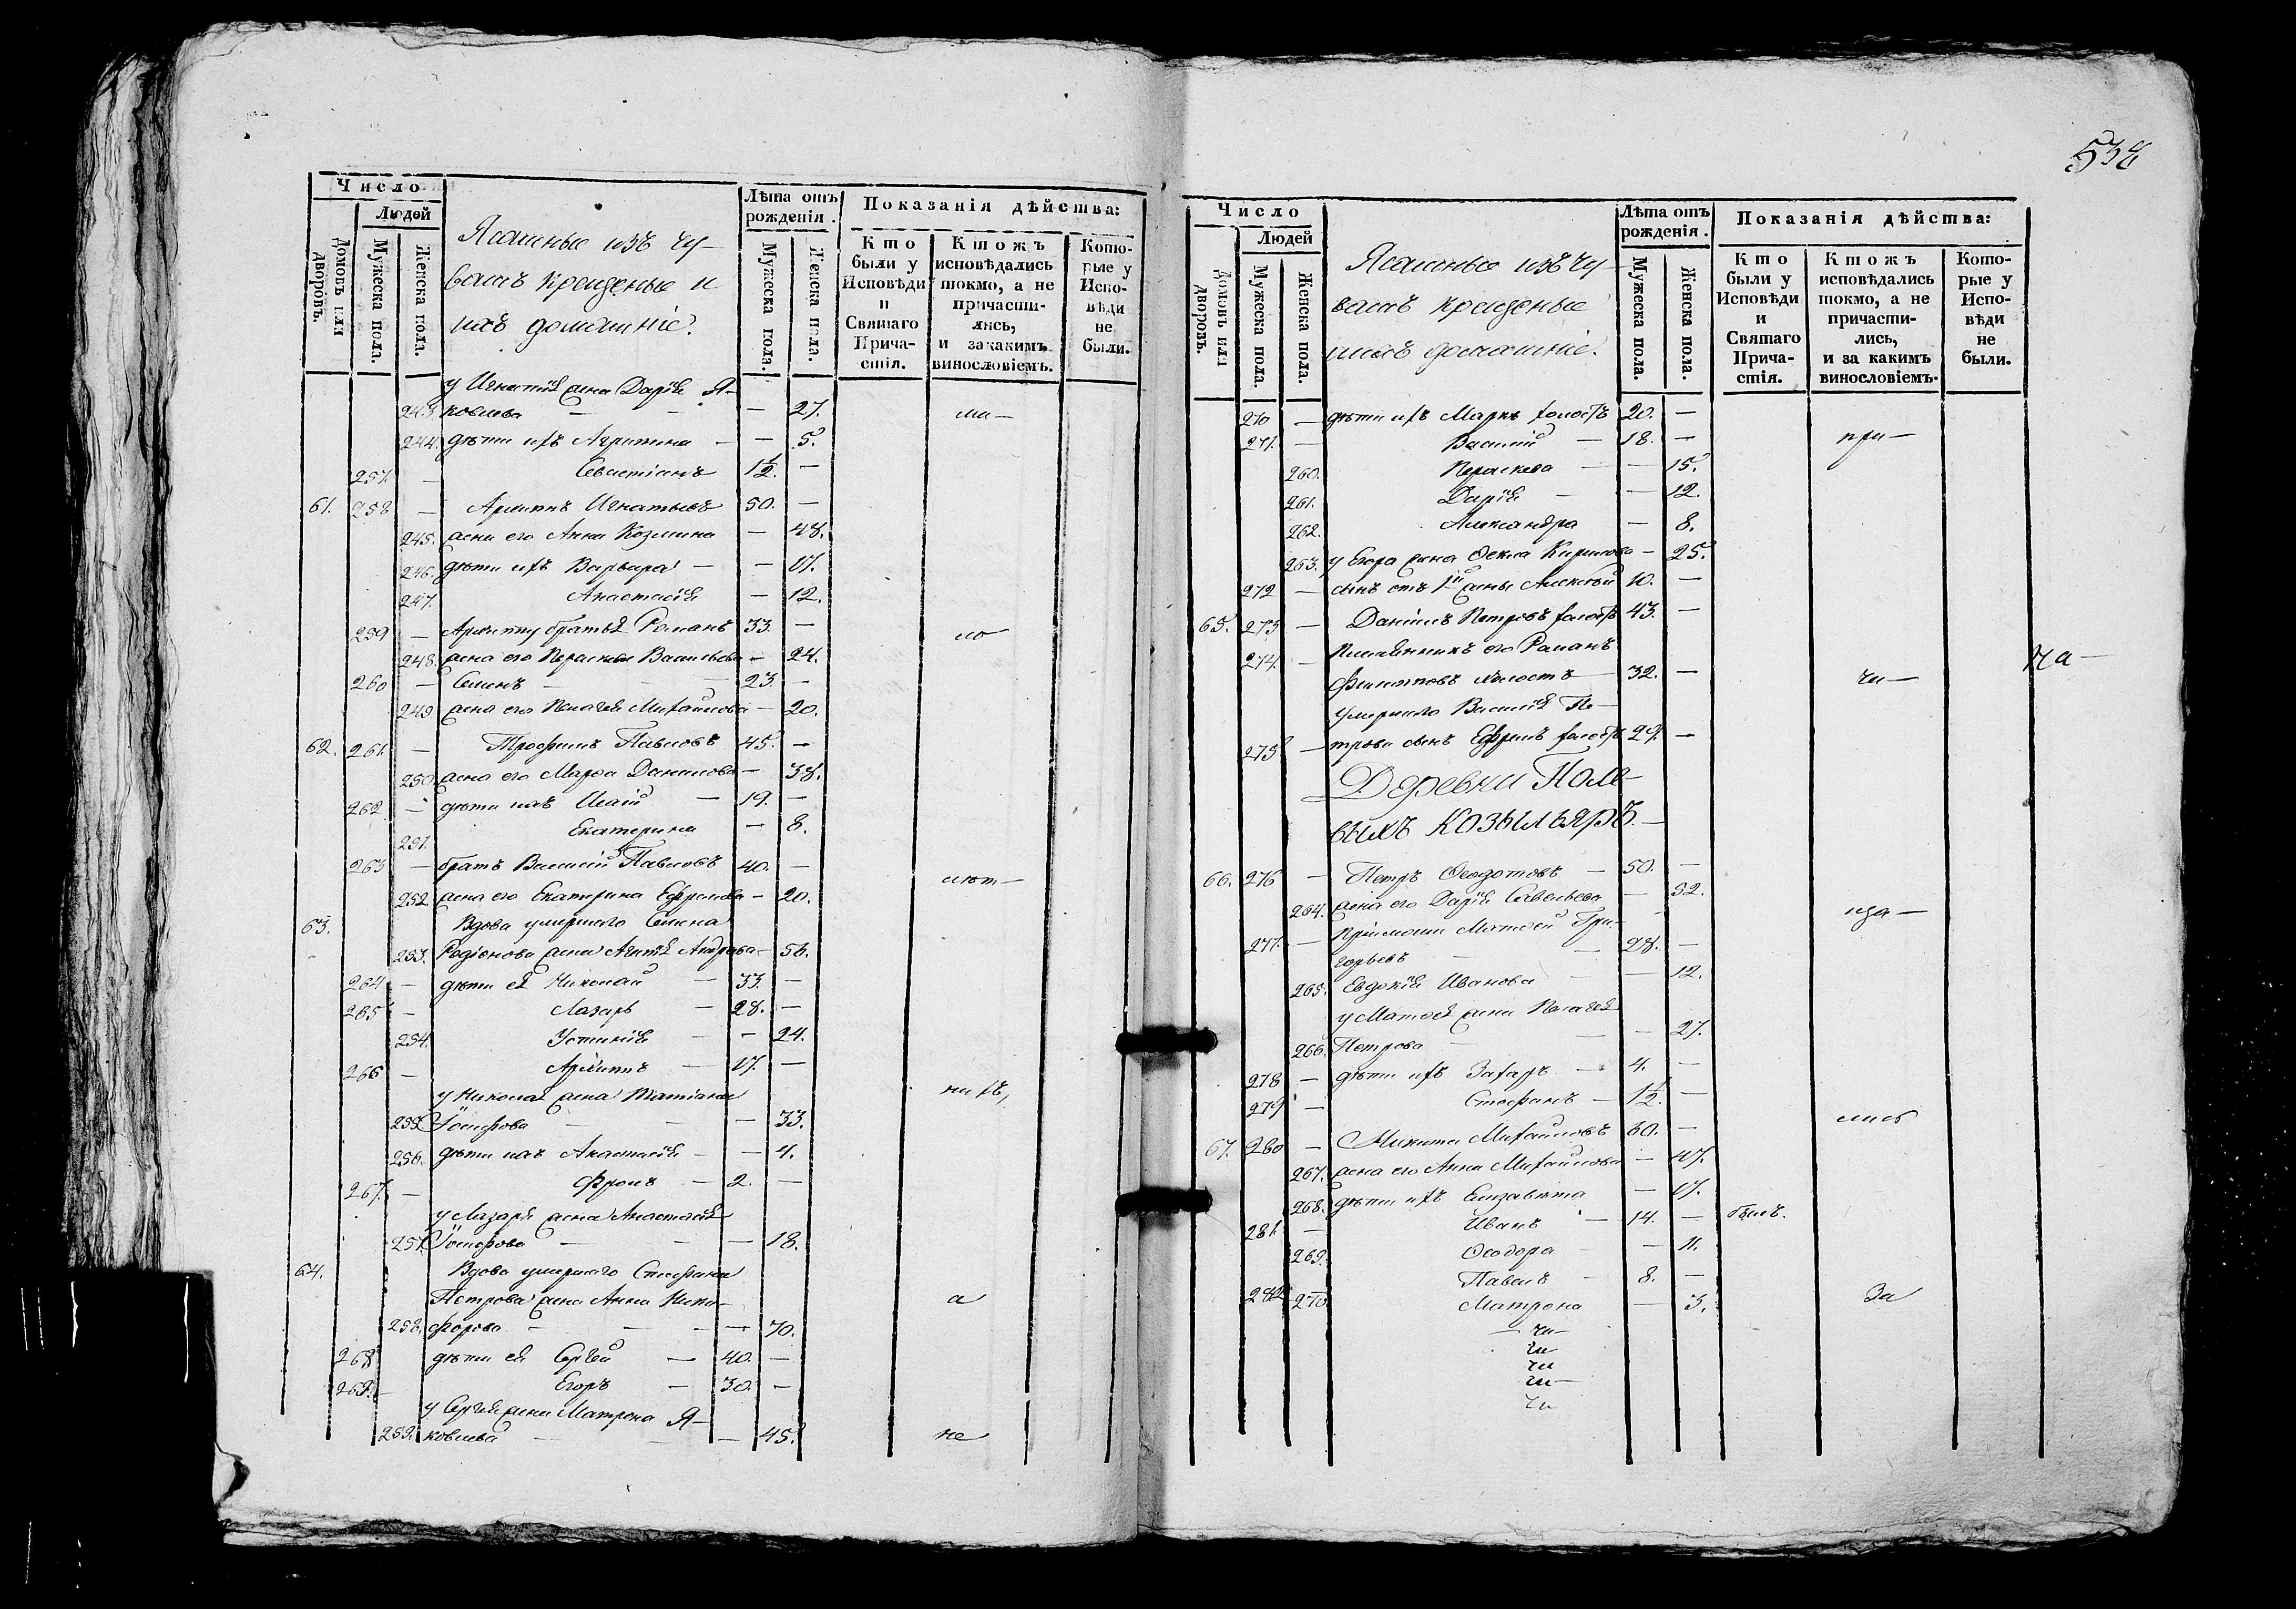 538
Число
Людей
Домовъ или дворовъ.
Мужеска пола.
Женска пола.
Ясашные изъ чу-
вашъ крещеные и
ихъ домашніе.
Лѣта отъ рожденія.
Мужеска пола.
Женска пола.
Показанія дѣйства:
Кто были у Исповѣди и Святаго Прича-стія.
Ктожъ исповѣдались токмо, а не причасти-лись, и за какимъ винословіемъ.
Кото-рые у Испо-вѣди не были.
у Игнатія жена Дарія Я-
243. ковлева — 27. ма-
244. дѣти ихъ Агрипина — — 5.
257. — Севастіанъ 1½. —
61. 258 — Архипъ Игнатьевъ 50. —
245. жена его Анна Козмина — 48.
246. дѣти ихъ Варвара — — 17.
247. Анастасія — 12.
259 — Архипу братья Романъ 33. — ло
248. жена его Параскева Васильева — 24.
260 — Семенъ — 23. —
249 жена его Пелагея Михайлова — 20.
62. 261. — Трофимъ Павловъ 45. —
250. жена его Марѳа Данилова — 38.
262 — дѣти ихъ Исай — 19. —
251. Екатерина — 8.
263 — братъ Василій Павловъ 40. — лѣт-
252. жена его Екатерина Ефремова — 20.
63. Вдова умершаго Семена
253. Родіонова жена Агафія — 56.
264 — дѣти ея Николай — 33. —
265 — Лазарь — 28. —
254. Устинія — — 24.
266 — Архипъ — 17. —
у Николая жена Татіана нихъ,
255. Іосифова — — — 33.
256. дѣти ихъ Анастасія — — 4.
267. — Фролъ — 2. —
у Лазаря жена Анастасія
257. Іосифова — — — 18.
64. Вдова умершаго Стефана
Петрова жена Анна Ники- а
258. форова — — — 70.
268 дѣти ея Сергей — 40. —
269. — Егоръ — 30. —
у Сергея жена Матрона Я-
259. ковлева — — — 45. не
Число
Людей
Домовъ или дворовъ.
Мужеска пола.
Женска пола.
Ясашные изъ чу-
вашъ крещеные
ихъ домашніе.
Лѣта отъ рожденія.
Мужеска пола.
Женска пола.
Показанія дѣйства:
Кто были у Исповѣди и Святаго Прича-стія.
Ктожъ исповѣдались токмо, а не причасти-лись, и за какимъ винословіемъ.
Кото-рые у Испо-вѣди не были.
270 — дѣти ихъ Марко холостъ 20. —
271. — Василій — 18. — при-
260. Параскева — — 15.
261. Дарія — — 12.
262. Александра — 8.
263. у Егора жена Ѳекла Кирилова — 25.
272 — сынъ отъ 1й жены Алексѣй 10. —
65. 273 — Даніилъ Петровъ холостъ 43. —
274. — Племянникъ его Романъ
Филиповъ холостъ 32. — ча- на-
умершаго Василія Пе-
275 — трова сынъ Ефремъ холостъ 29. —
Деревни Поле-
выхъ Козыльяръ. —
66. 276 — Петръ Ѳеодотовъ — 50. —
264. жена его Дарія Савельева — 52.
277. — пріимышъ Матѳей Гри- ща-
горьевъ — — 28. —
265. Евдокія Иванова — — 12.
у Матѳея жена Пелагея
266. Петрова — — — 27.
278 — дѣти ихъ Захаръ — 4. —
279 — Стефанъ — 1½. —
67. 280 — Никита Михайловъ 60. — лись
267. жена его Анна Михайлова — 47.
268. дѣти ихъ Елизавета — 17.
281. — Иванъ — 14. — былъ.
269. Ѳеодора — 11.
282 Павелъ — 8. —
270. Матрона — 3. За